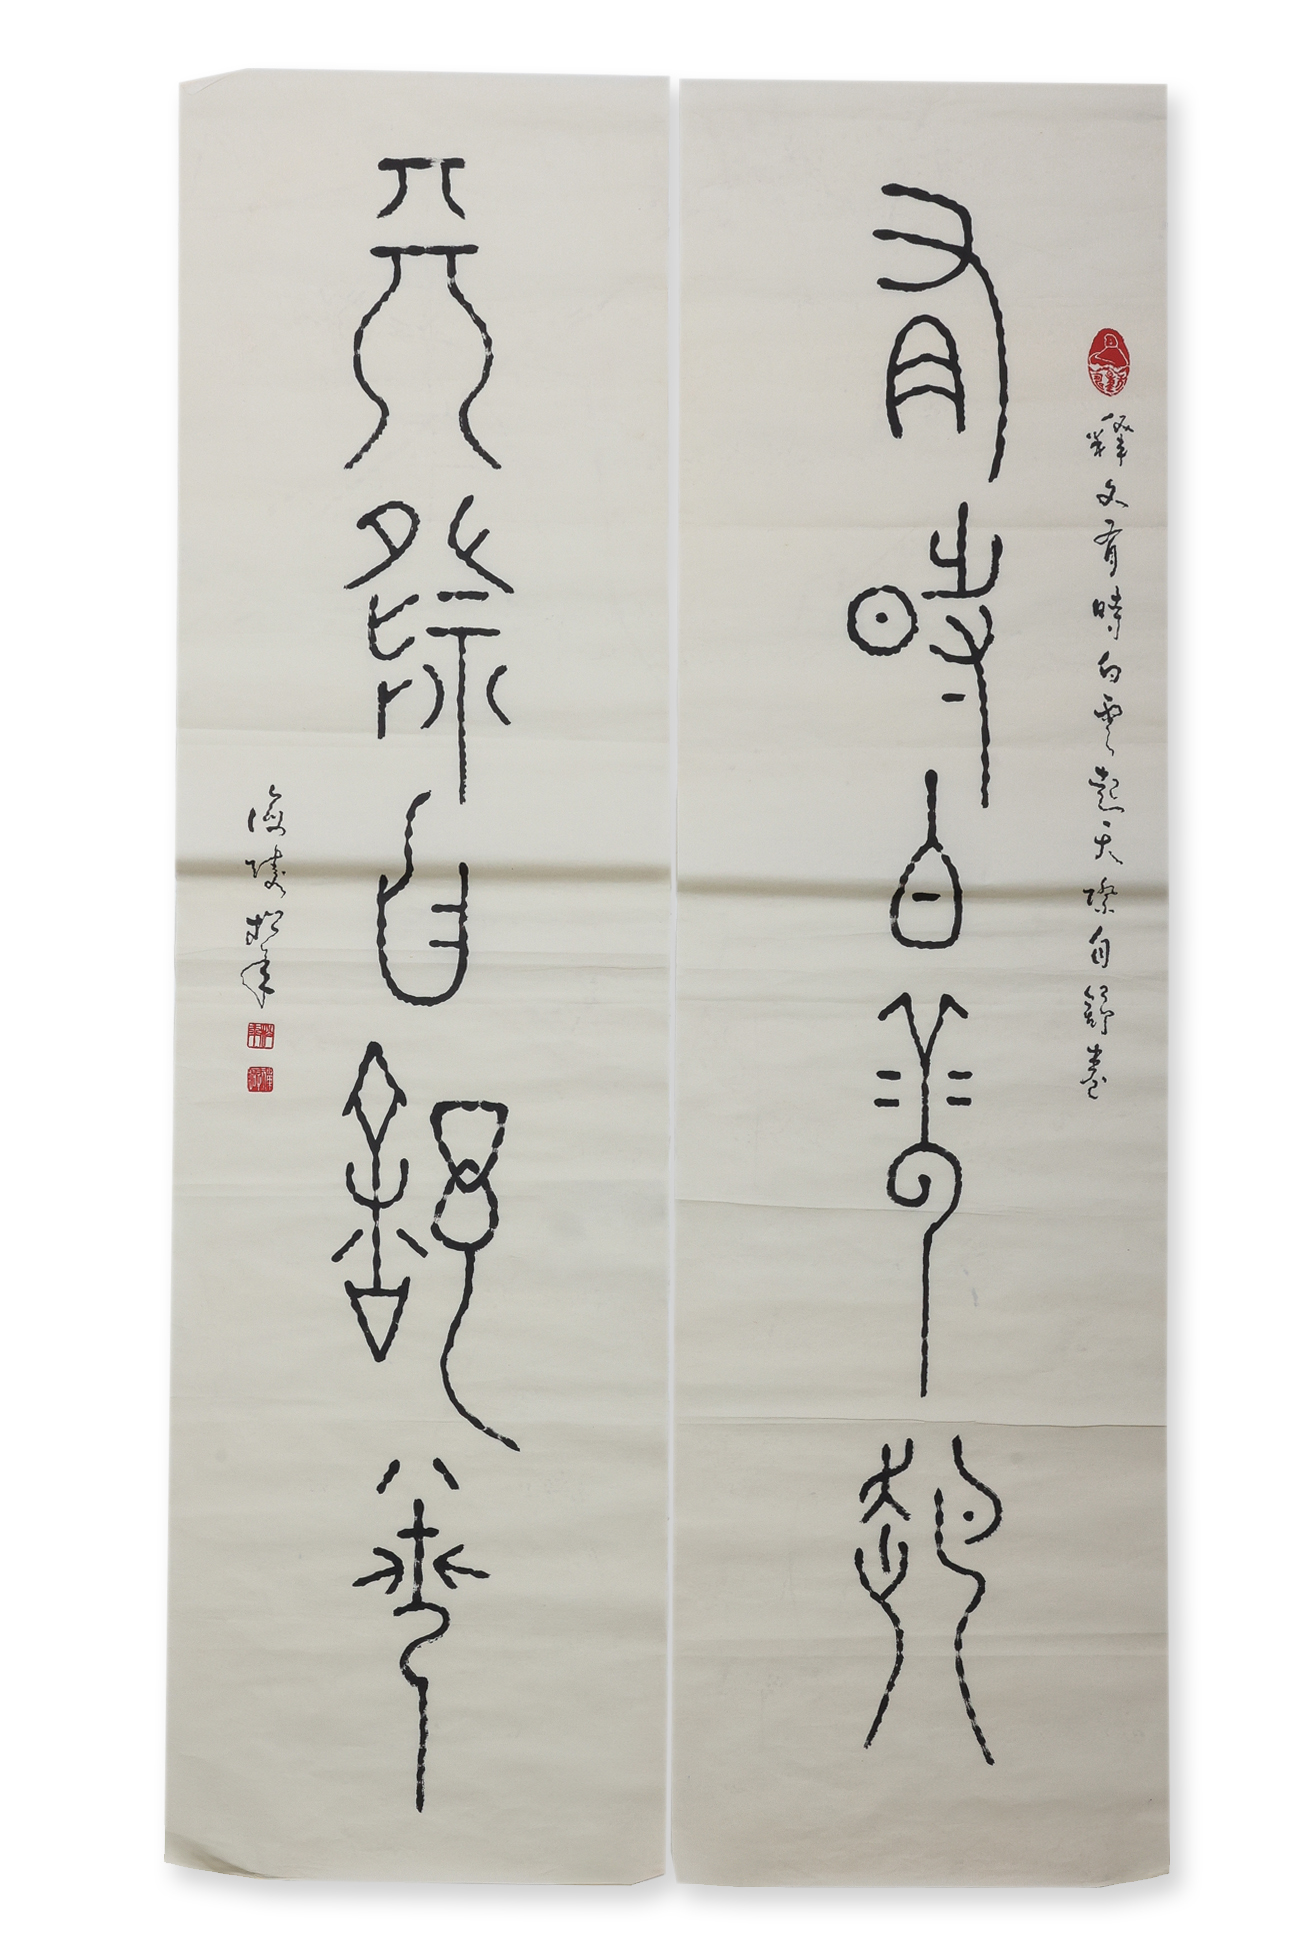 有時白雲起
天際自舒卷
釋文有時白雲起天際自舒卷
海陵松年